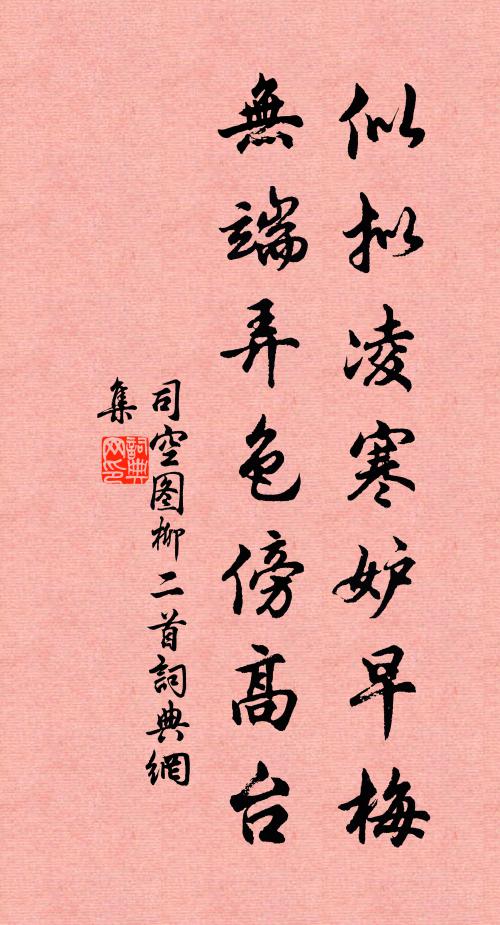 似拟凌寒妒早梅
無端弄色傍高台
司空图柳二首詞典網
集
詞典網印